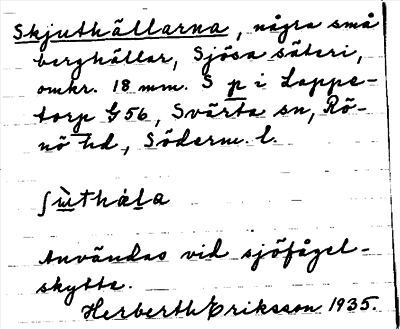 Skjuthällarna, några små
berghällar, Sjösa säteri,
omkr. 18 mm. S p i Loppe-
torp G 56, Svärta sn, Rö-
nö hd, Söderm. l.
Användas vid sjöfågel-
skytte.
Herberth Eriksson 1935.